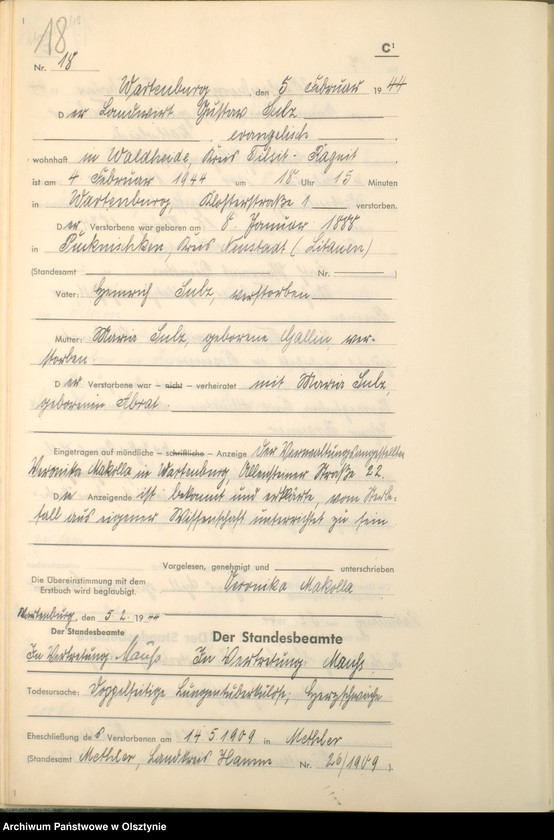 18
C¹
Nr. 18
Wartenburg, den 5 Februar 1944
Der Landwirt Gustav Sulz
, evangelisch
wohnhaft in Waldheide, Kreis Tilsit-Ragnit
ist am 4 Februar 1944 um 18 Uhr 15 Minuten
in Wartenburg, Klosterstraße 1 verstorben.
Der Verstorbene war geboren am 8. Januar 1888
in Kreis Neustadt (Litauen)
(Standesamt Nr. )
Vater: Heinrich Sulz, verstorben
Mutter: Maria Sulz, geborene Gallin, ver-
storben
Der Verstorbene war — nicht — verheiratet mit Maria Sulz,
geborenen Abrat.
Eingetragen auf mündliche — schriftliche — Anzeige der Verwaltungsangestellten
Veronika Makolla in Wartenburg, Allensteiner Straße 22.
Die Anzeigende ist bekannt und erklärte, vom Sterbe-
fall aus eigener Wissenschaft unterrichtet zu sein
Vorgelesen, genehmigt und unterschrieben
Die Übereinstimmung mit dem
Erstbuch wird beglaubigt.
Veronika Makolla
Wartenburg, den 5. 2. 1944
Der Standesbeamte
Der Standesbeamte
In Vertretung
In Vertretung
Todesursache: Doppelseitige Lungentuberkulose, Herzschwäche
Eheschließung des Verstorbenen am 14 5 1909 in Methler
(Standesamt Methler, Landkreis Hamm Nr. 26/1909)
Archiwum Państwowe w Olsztynie